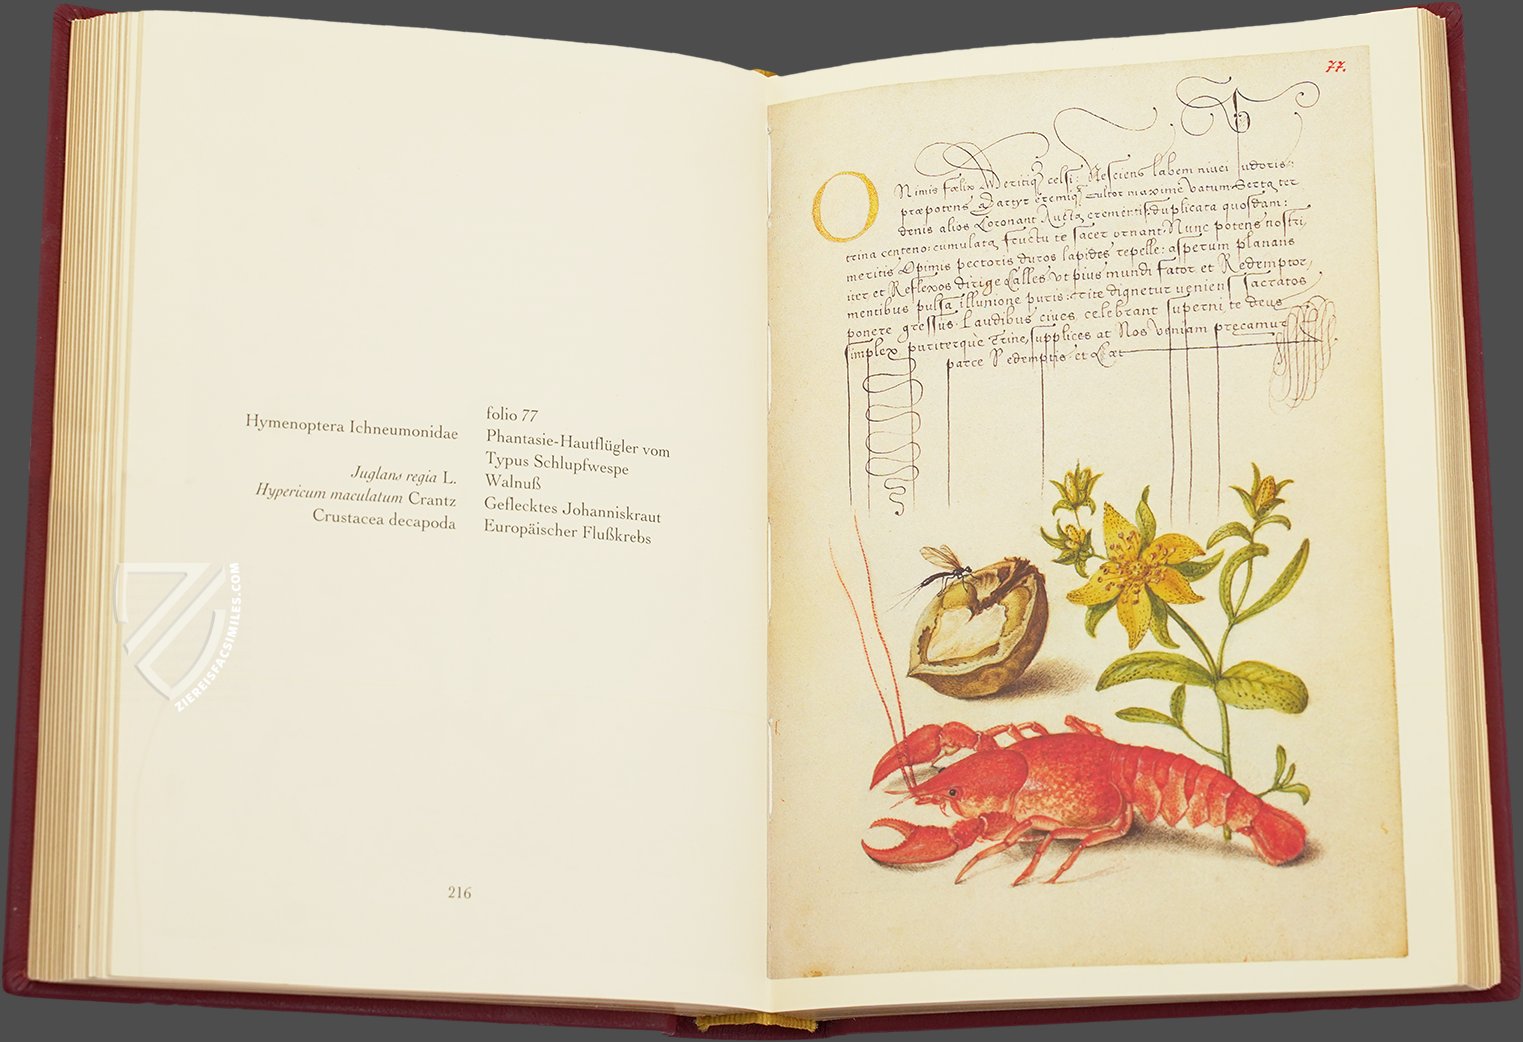 folio 77
Hymenoptera Ichneumonidae Phantasie-Hautflügler vom
Typus Schlupfwespe
Juglans regia L. Walnuß
Hypericum maculatum Crantz Geflecktes Johanniskraut
Crustacea decapoda Europäischer Flußkrebs
216
ZIEREISFACSIMILES.COM
77.
O Nimis fœlix Meritiq celsi: Nesciens labem nivei pudoris:
præpotens Martyr eremiq Cultor maxime vatum Serta ter
denis alios Coronant Aucta crementis: duplicata quosdam:
trina centeno: cumulata fructu te sacer ornant. Nunc potens nostri
meritis Opimis pectoris duros lapides repelle: asperum planans
iter et Reflexos dirige Calles Ut pius mundi Sator et Redemptor,
mentibus pulsa illunione puris: rite dignetur veniens sacratos
ponere gressus. Laudibus cives celebrant superni te deus
simplex pariterque Trine, supplices at Nos Veniam precamur
parce Redemptis et Cæt